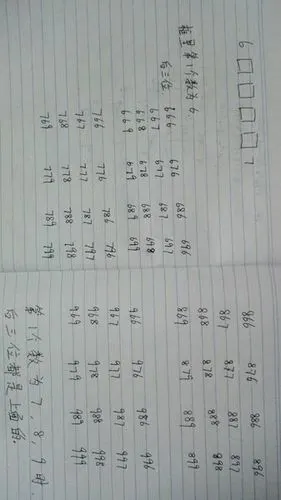 6 □ □ □ □ 7
第1个数为6
后三位
666 676 686 696
667 677 687 697
668 678 688 698
669 679 689 699
766 776 786 796
767 777 787 797
768 778 788 798
769 779 789 799
866 876 886 896
867 877 887 897
868 878 888 898
869 879 889 899
966 976 986 996
967 977 987 997
968 978 988 998
969 979 989 999
第1个数为7,8,9时,
后三位都是上面